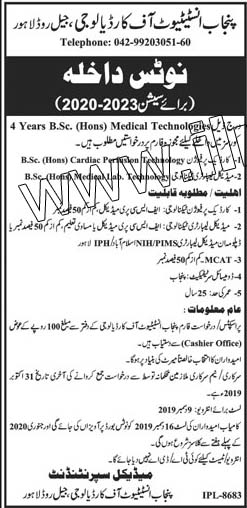 پنجاب انسٹیٹیوٹ آف کارڈیالوجی، جیل روڈ لاہور
Telephone: 042-99203051-60
نوٹس داخلہ
(برائے سیشن 2023-2020)
4 Years B.Sc. (Hons) Medical Technologies درج ذیل
کورسز میں داخلے کیلئے مجوزہ فارم پر درخواستیں مطلوب ہیں۔
1- کارڈیک پرفیوژن ٹیکنالوجی B.Sc. (Hons) Cardiac Perfusion Technology
2- میڈیکل لیبارٹری ٹیکنالوجی B.Sc. (Hons) Medical Lab. Technology
اہلیت / مطلوبہ قابلیت
1- کارڈیک پرفیوژن ٹیکنالوجی: ایف ایس سی پری میڈیکل، کم از کم 50 فیصد نمبر
2- میڈیکل لیبارٹری ٹیکنالوجی: ایف ایس سی پری میڈیکل یا مساوی تعلیم، کم از کم 50 فیصد نمبر یا
ڈپلومہ ان میڈیکل لیبارٹری ٹیکنالوجی NIH/PIMS اسلام آباد / IPH لاہور
3- MCAT کم از کم 50 فیصد نمبر
4- ڈومیسائل سرٹیفکیٹ: پنجاب
5- عمر کی حد: 25 سال
عام معلومات:
پراسپیکٹس / درخواست فارم پنجاب انسٹیٹیوٹ آف کارڈیالوجی کے دفتر سے مبلغ 100 روپے کے عوض
(Cashier Office) سے دستیاب ہیں۔
امیدواران کا انتخاب خالصتاً میرٹ کی بنیاد پر ہوگا۔
سرکاری / نیم سرکاری ملازمین محکمانہ توسط سے درخواست جمع کروانے کی آخری تاریخ 31 اکتوبر
2019ء
ٹسٹ برائے انٹرویو: 9 دسمبر 2019ء
کامیاب امیدواران کی لسٹ 16 دسمبر 2019ء کو نوٹس بورڈ پر آویزاں کی جائے گی اور جنوری 2020
کے پہلے ہفتے سے کلاسز شروع ہوں گی۔
انٹرویو / ٹیسٹ کیلئے کوئی ٹی اے / ڈی اے نہیں دیا جائے گا۔
میڈیکل سپرنٹنڈنٹ
پنجاب انسٹیٹیوٹ آف کارڈیالوجی، جیل روڈ، لاہور
IPL-8683